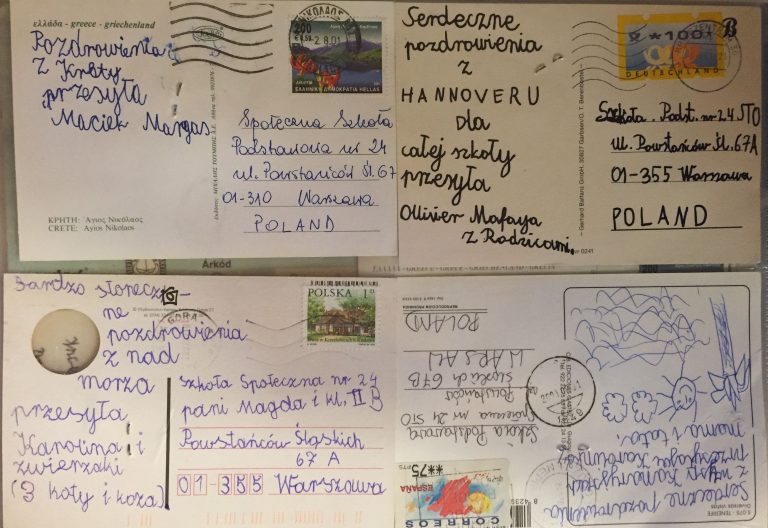 ελλάδα - greece - griechenland
Pozdrowienia
z Krety
przesyła
Maciek Margas
200
2.8.01
ΕΛΛΗΝΙΚΗ ΔΗΜΟΚΡΑΤΙΑ HELLAS
Społeczna Szkoła
Podstawowa nr 24
ul. Powstańców Śl. 67
01-310 Warszawa
POLAND
ΚΡΗΤΗ: Άγιος Νικόλαος
CRETE: Agios Nikolaos
Serdeczne
pozdrowienia
z
HANNOVERU
dla
całej szkoły
przesyła
Ollivier Mafaya
z Rodzicami.
B
*100
DEUTSCHLAND
Szkoła. Podst. nr 24 STO
ul. Powstańców Śl. 67A
01-355 Warszawa
POLAND
Arkód
Bardzo słonecz-
ne
pozdrowienia
z nad
morza
przesyła
Karolina i
zwierzaki
(3 koty i koza)
POLSKA
Szkoła Społeczna nr 24
pani Magda i kl. II B
Powstańców Śląskich
67 A
01-355 Warszawa
POLAND
WARSAW
Powstańców
Śląskich 67B
Szkoła Podstawowa
nr 24 STO
**75
ESPAÑA
CORREOS
TENERIFE
Serdeczne pozdrowienia
z wysp Kanaryjskich
przesyła Karolinka
mama i tata.